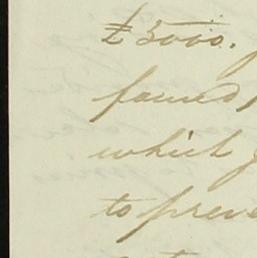 £5000.
famed
which
to preve